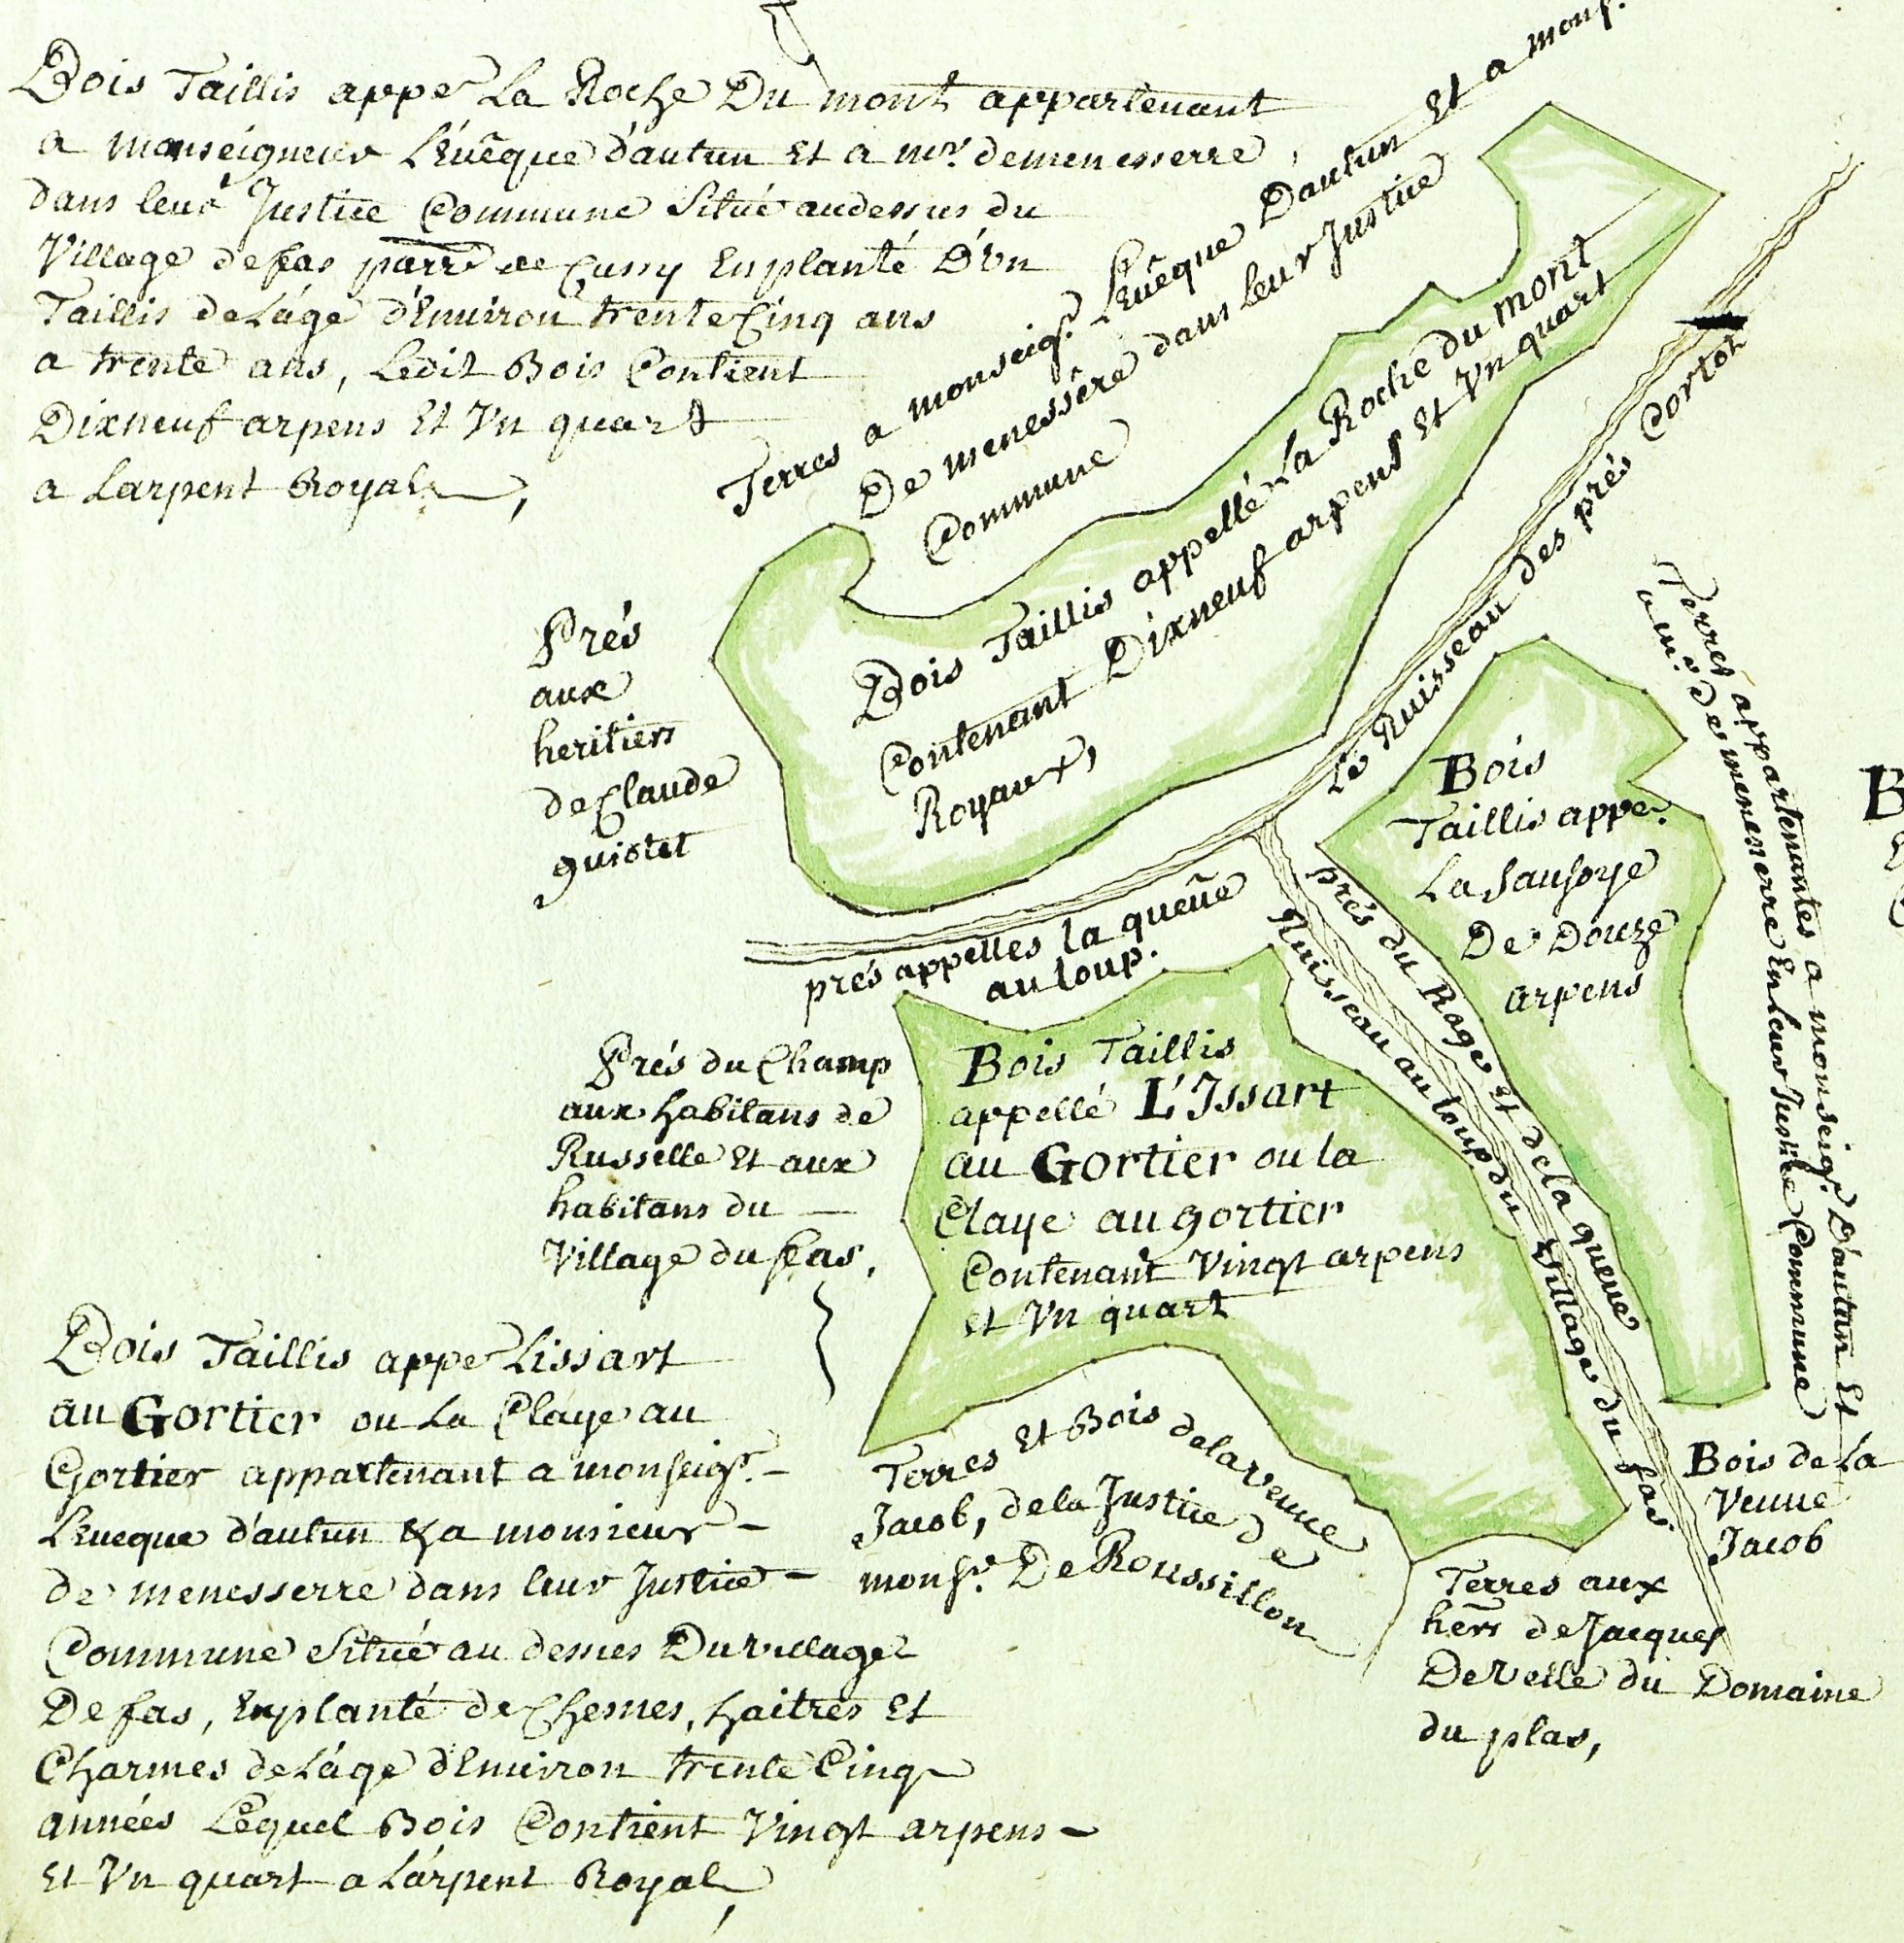 Bois Taillis appe La Roche Du mont appartenant
a monseigneur L'Evêque d'autun Et a mr. demenesserre,
dans leur Justice Commune Situé audessus du
Village defas parr de Cussy Enplanté D'Vn
Taillis deLâge d'Enuiron trente Cinq ans
a trente ans, Ledit Bois Contient
Dixneuf arpens Et Vn quart
a Larpent Royal,
Terres a monseigr. L'Evêque D'autun Et a monsr.
De menessêre dans Leur Justice
Commune
Bois Taillis appellé La Roche du mont
Contenant Dixneuf arpens Et Vn quart
Royaux,
Prés
aux
heritiers
deClaude
guiotet
Le Ruisseau des prés Cortot
Bois
Taillis appe.
La Saussoye
De Douze
arpens
Terres appartenantes a monseigr. D'autun Et
a mr. De menesserre En Leur Justice Commune
B
prés appelles la queüe
au loup.
prés du Roge Et dela queue
Ruisseau au loup du Village du fas.
Prés du Champ
aux habitans de
Russelle Et aux
habitans du
Village du fas,
Bois Taillis
appellé L'Issart
au Gortier ou la
Claye au gortier
Contenant Vingt arpens
et Vn quart
Bois Taillis appe Lissart
au Gortier ou La Claye au
Gortier appartenant a monseigr.
L'Eueque d'autun & a monsieur
de menesserre dans leur Justice
Commune Situé au dessus Du village
De fas, Enplanté de Chesnes, haitres Et
Charmes deLâge d'Enuiron trente Cinq
années Lequel Bois Contient Vingt arpens
Et Vn quart a Larpent Royal,
Terres Et Bois delaveuue
Jacob, dela Justice de
monsr. De Roussillon
Bois de La
Veuue
Jacob
Terres aux
hers de Jacques
Develle du Domaine
du plas,